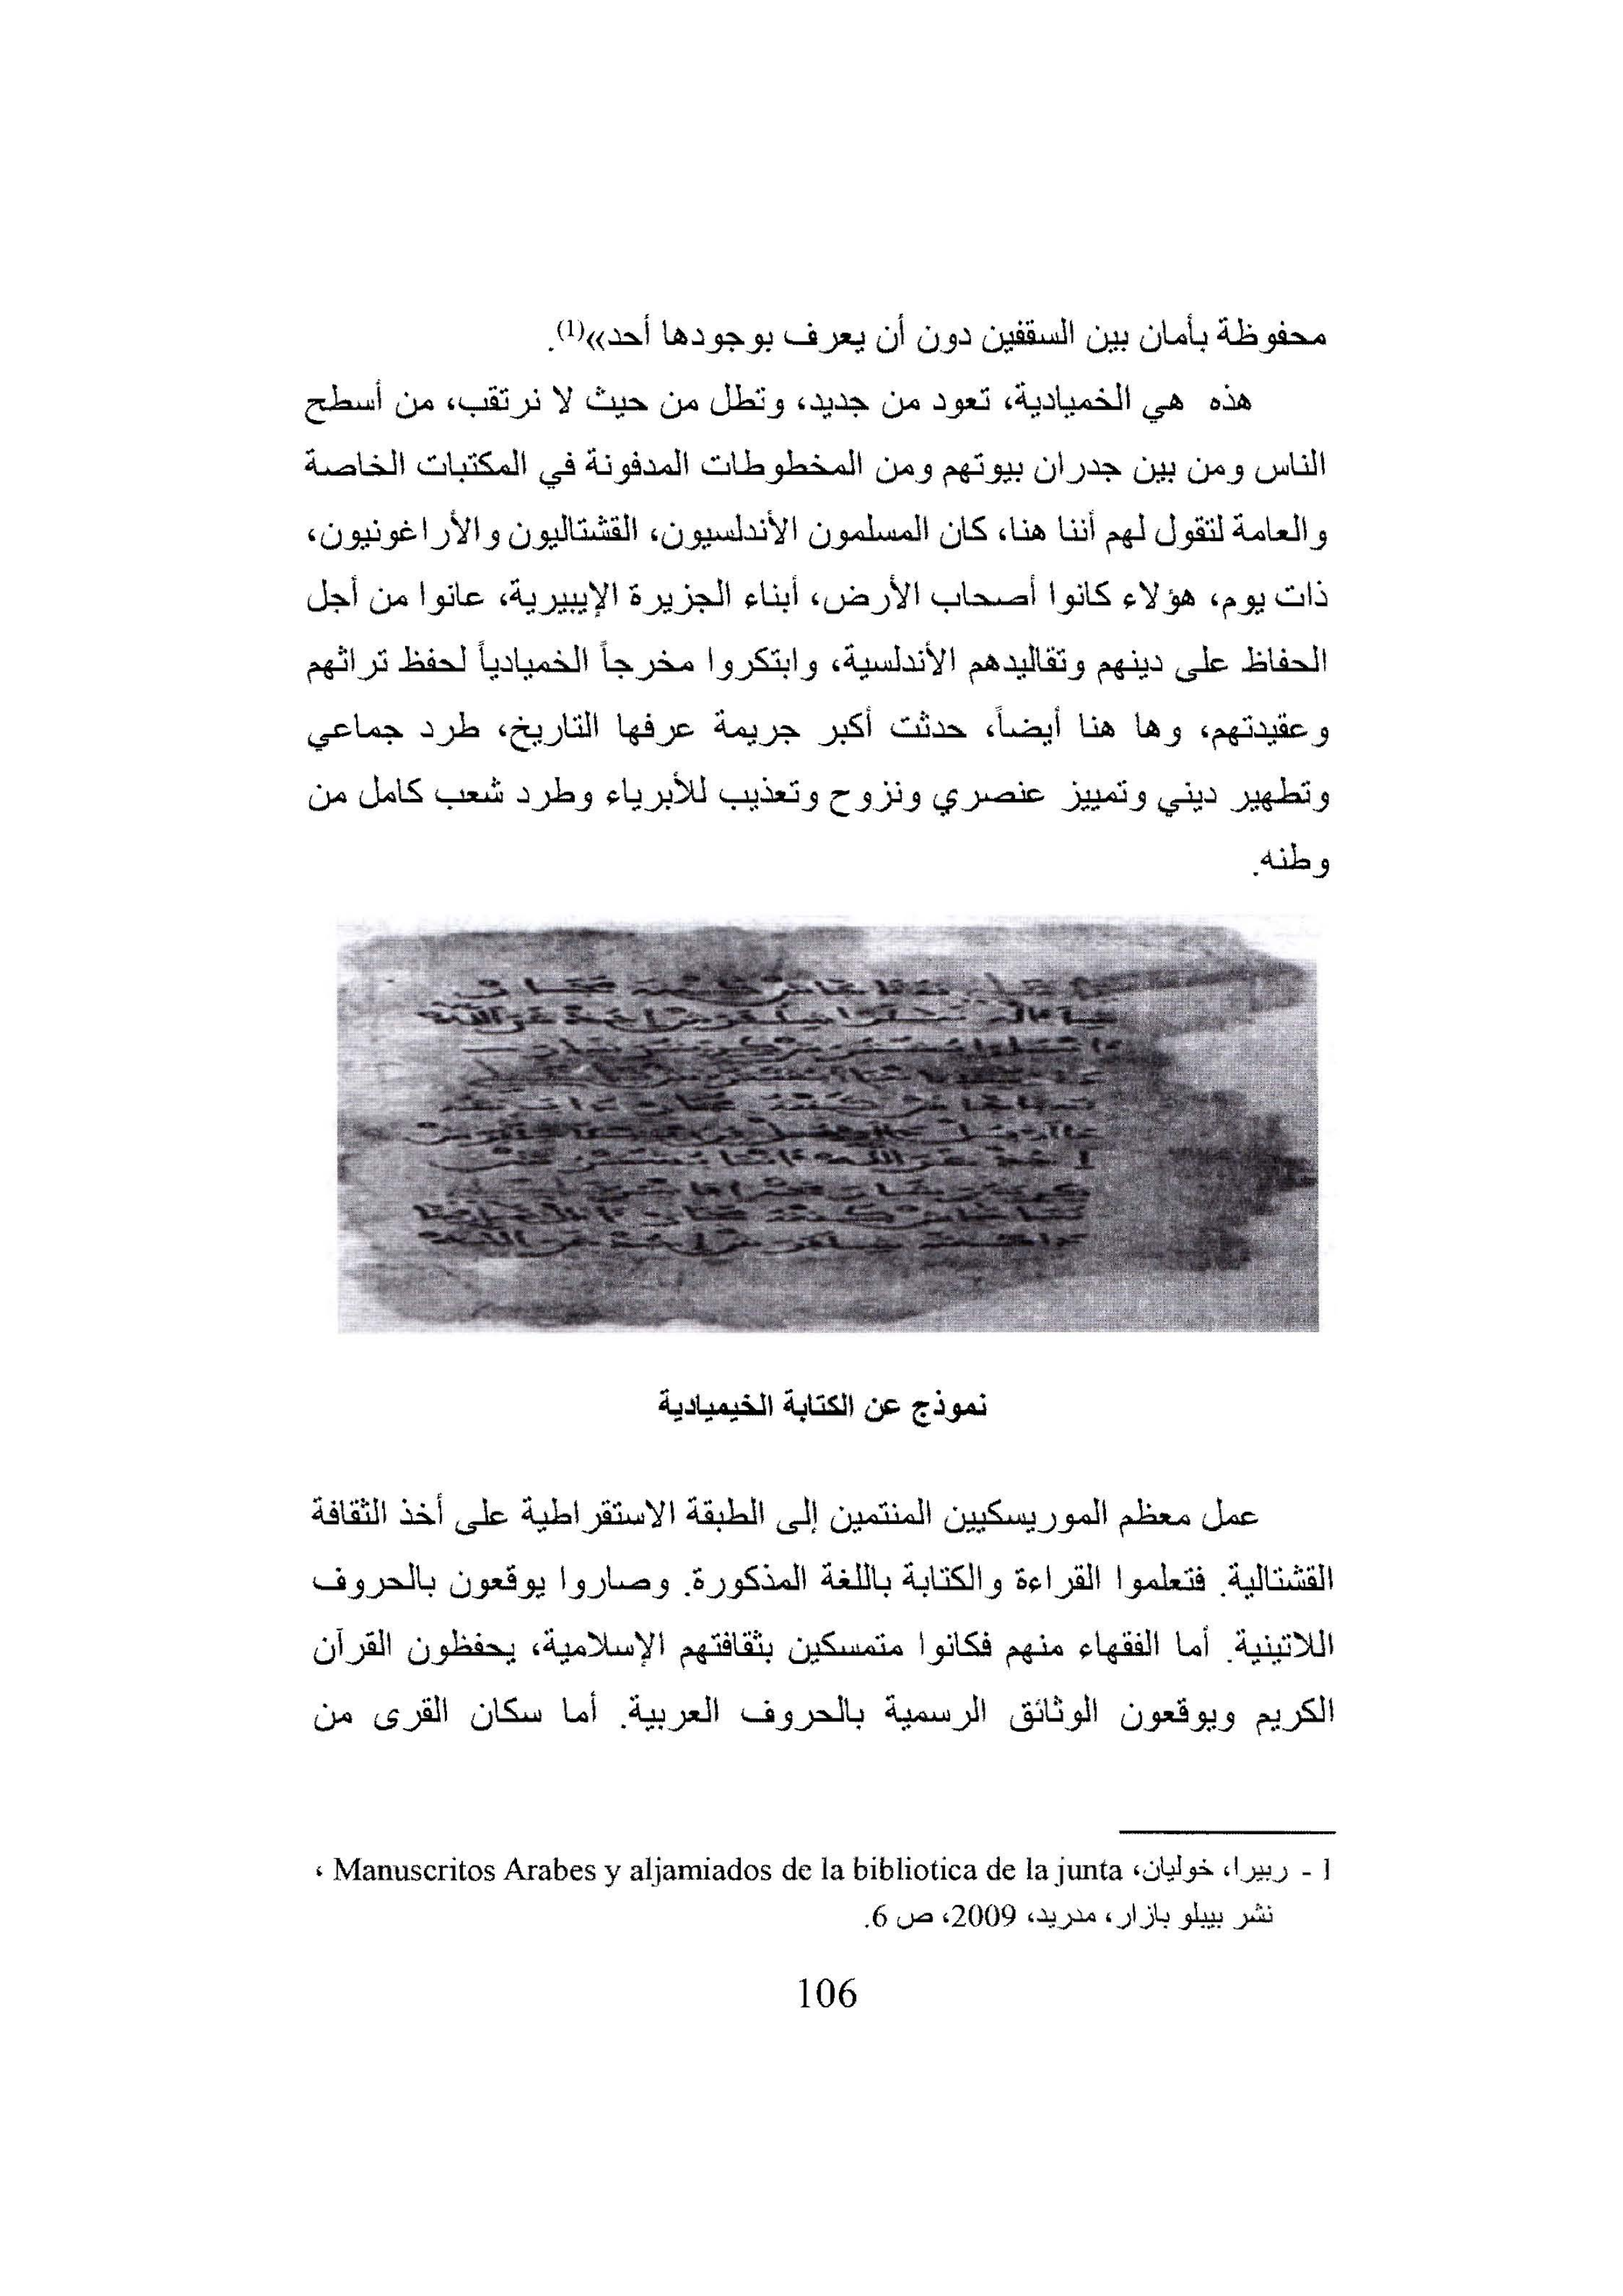 محفوظة بأمان بين السقفين دون أن يعرف بوجودها أحد»(1).
هذه هي الخميادية، تعود من جديد، وتطل من حيث لا نرتقب، من أسطح
الناس ومن بين جدران بيوتهم ومن المخطوطات المدفونة في المكتبات الخاصة
والعامة لتقول لهم أننا هنا، كان المسلمون الأندلسيون، القشتاليون والأراغونيون،
ذات يوم، هؤلاء كانوا أصحاب الأرض، أبناء الجزيرة الإيبيرية، عانوا من أجل
الحفاظ على دينهم وتقاليدهم الأندلسية، وابتكروا مخرجاً الخميادياً لحفظ تراثهم
وعقيدتهم، وها هنا أيضاً، حدثت أكبر جريمة عرفها التاريخ، طرد جماعي
وتطهير ديني وتمييز عنصري ونزوح وتعذيب للأبرياء وطرد شعب كامل من
وطنه.
نموذج عن الكتابة الخيميادية
عمل معظم الموريسكيين المنتمين إلى الطبقة الاستقراطية على أخذ الثقافة
القشتالية. فتعلموا القراءة والكتابة باللغة المذكورة. وصاروا يوقعون بالحروف
اللاتينية. أما الفقهاء منهم فكانوا متمسكين بثقافتهم الإسلامية، يحفظون القرآن
الكريم ويوقعون الوثائق الرسمية بالحروف العربية. أما سكان القرى من
1 - ريبيرا، خوليان، Manuscritos Arabes y aljamiados de la bibliotica de la junta ،
نشر بيبلو بازار، مدريد، 2009، ص 6.
106